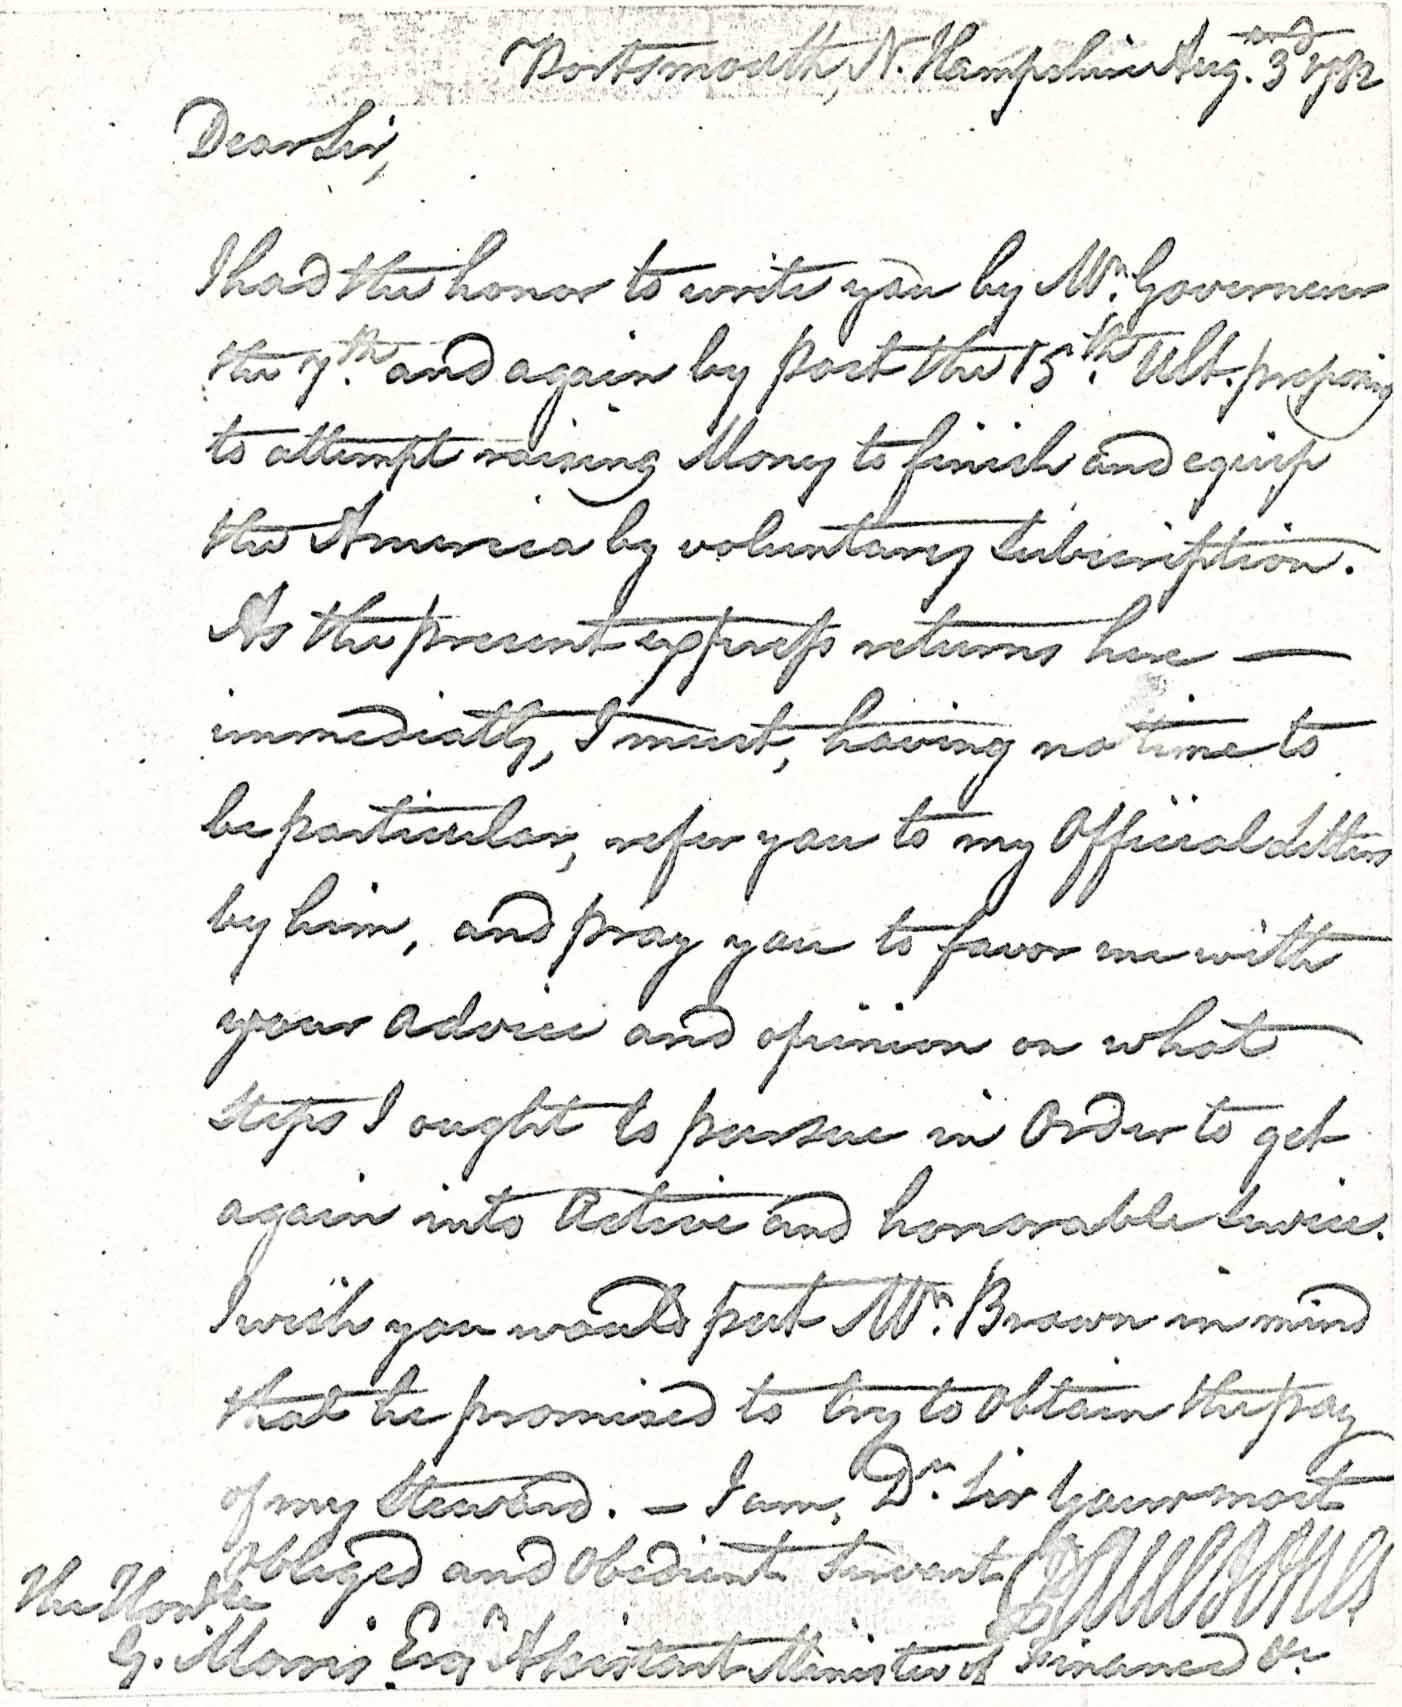 Portsmouth, N. Hampshire Aug. 3rd 1782
Dear Sir,
I had the honor to write you by Mr. Governeur
the 7th. and again by post the 15th. Ult. proposing
to attempt raising Money to finish and equip
the America by voluntary Subscription.
As the present express returns here —
immediatly, I must, having no time to
be particular, refer you to my Official Letters
by him, and pray you to favor me with
your advice and opinion on what
steps I ought to pursue in Order to get
again into Active and honorable Service.
I wish you would put Mr. Brown in mind
that he promised to try to Obtain the pay
of my Steward. — I am, Dr. Sir Your most
Obliged and Obedient Servant
Paul Jones
The Honble
G. Morris Esqr. Assistant Minister of Finance &c